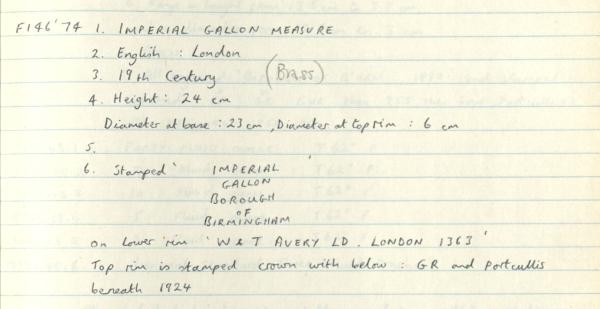 F146'74 1. IMPERIAL GALLON MEASURE
2. English : London
3. 19th Century (BRASS)
4. Height : 24 cm
Diameter at base : 23 cm, Diameter at top rim : 6 cm
5.
6. Stamped ' IMPERIAL '
GALLON
BOROUGH
OF
BIRMINGHAM
on lower rim ' W & T AVERY LD. LONDON 1363 '
Top rim is stamped crown with below : GR and portcullis
beneath 1924